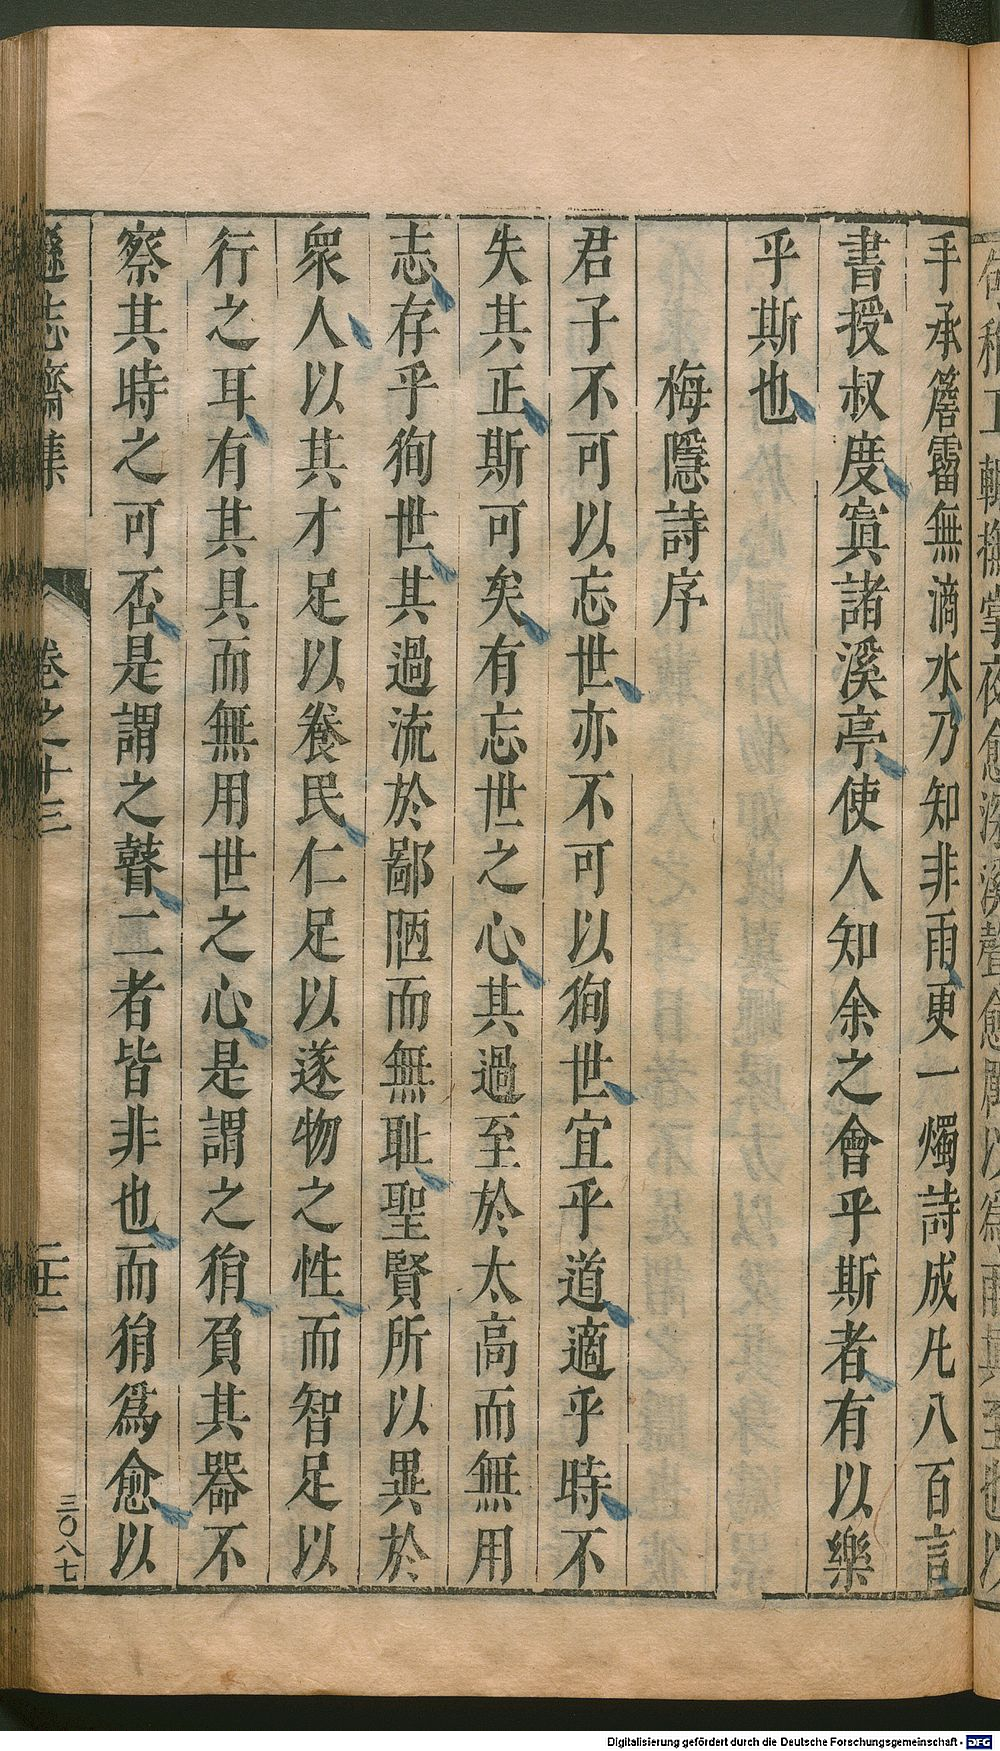 手承簷霤無滴水乃知非雨更一燭詩成凡八百言
書授叔度寘諸溪亭使人知余之會乎斯者有以樂
乎斯也
梅隱詩序
君子不可以忘世亦不可以狥世宜乎道適乎時不
失其正斯可矣有忘世之心其過至於太高而無用
志存乎狥世其過流於鄙陋而無耻聖賢所以異於
衆人以其才足以養民仁足以遂物之性而智足以
行之耳有其具而無用世之心是謂之狷負其器不
察其時之可否是謂之瞽二者皆非也而狷爲愈以
遜志齋集
卷之十三
三〇八七
Digitalisierung gefördert durch die Deutsche Forschungsgemeinschaft - DFG